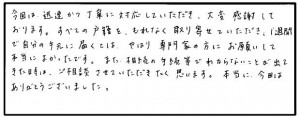 今回は、迅速かつ丁寧に対応していただき、大変感謝して
おります。すべての戸籍を、もれなく取り寄せていただき、1週間
で自分の手元に届くとは、やはり専門家の方にお願いして
本当によかったです。また、相続の手続等でわからないことが出て
きた時は、ご相談させていただきたく思います。本当に、今回は
ありがとうございました。